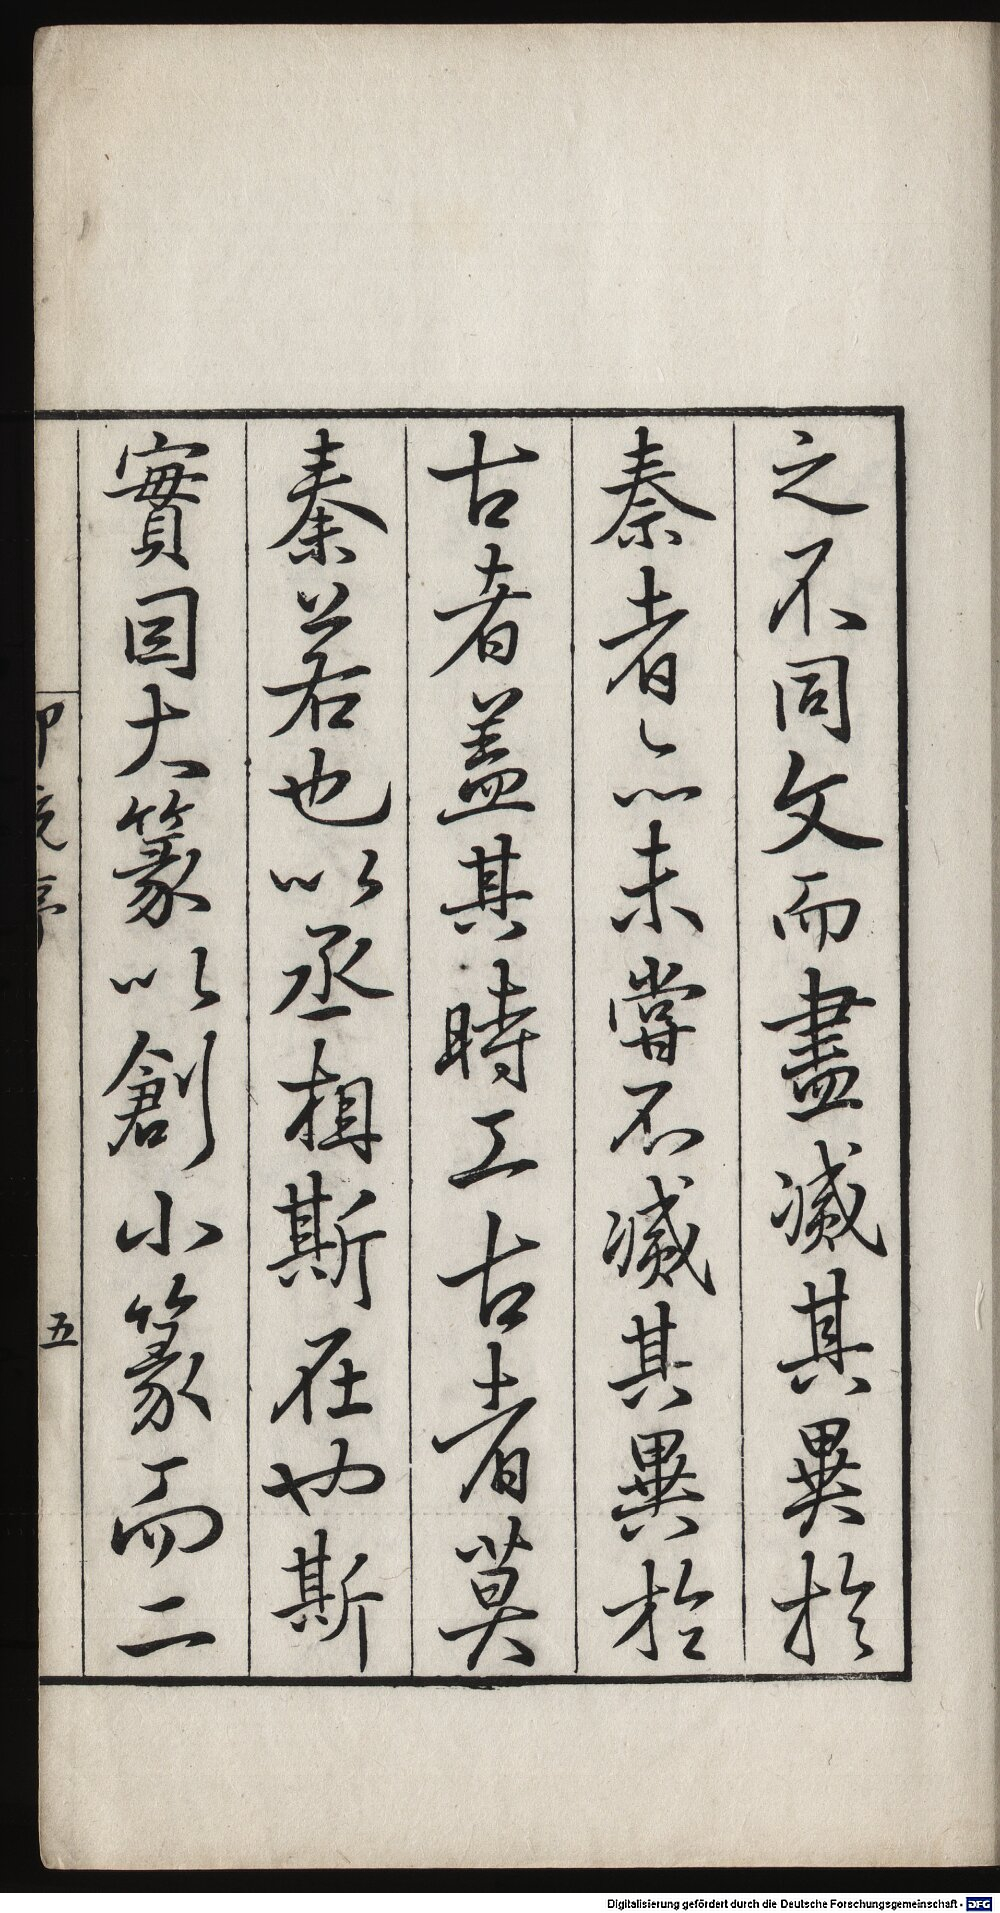 之不同文而盡滅其異於
秦者亦未嘗不滅其異於
古者蓋其時工古者莫
秦若也以丞相斯在也斯
實因大篆以創小篆而二
五
Digitalisierung gefördert durch die Deutsche Forschungsgemeinschaft - DFG